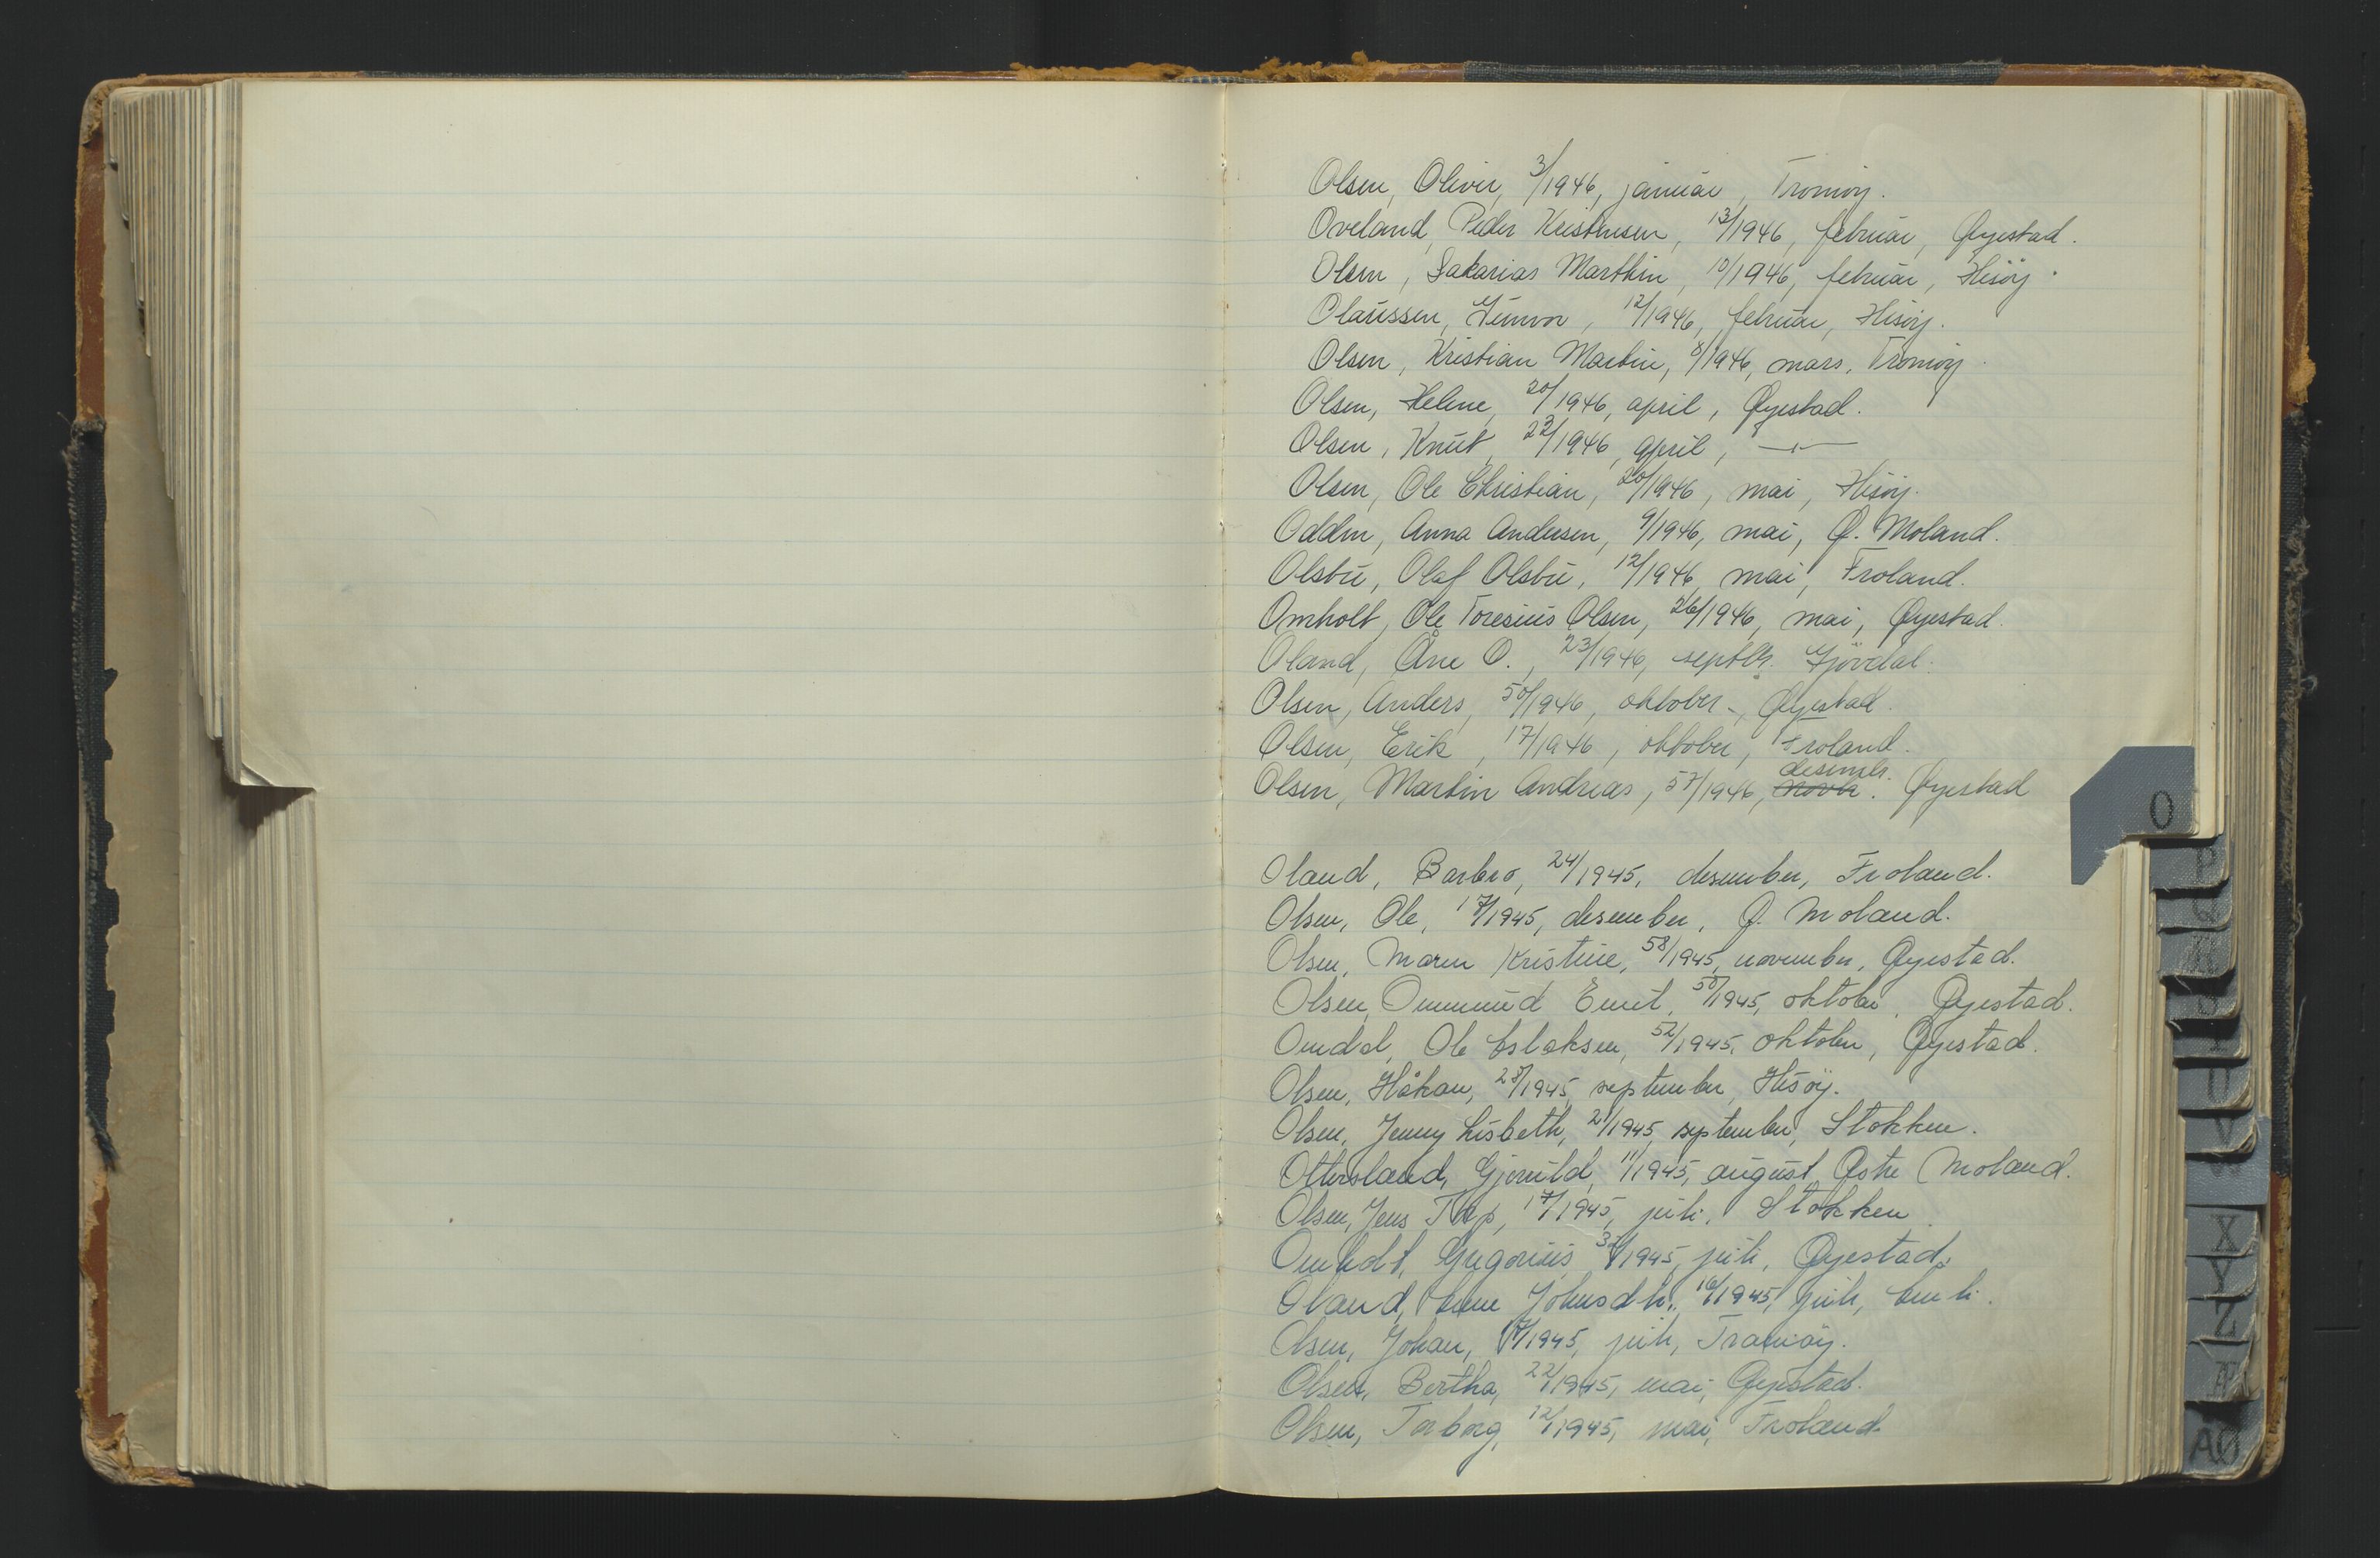 Olsen, Oliver, 3/1946, januar, Tromöy.
Oveland, Peder Kristensen, 13/1946, februar, Øyestad.
Olsen, Sakarias Marthin, 10/1946, februar, Hisöy.
Olaussen, Gunvor, 12/1946, februar, Hisöy.
Olsen, Kristian Martin, 8/1946, mars, Tromöy.
Olsen, Helene, 20/1946, april, Øyestad.
Olsen, Knut, 22/1946, april, —"—
Olsen, Ole Christian, 20/1946, mai, Hisöy.
Odden, Anna Andersen, 9/1946, mai, Ø. Moland.
Olsbu, Olaf Olsbu, 12/1946, mai, Froland.
Omholt, Ole Toresius Olsen, 26/1946, mai, Øyestad.
Oland, Åne O., 23/1946, septbr. Gjövdal.
Olsen, Anders, 50/1946, oktober, Øyestad.
Olsen, Erik, 17/1946, oktober, Froland.
Olsen, Martin Andreas, 57/1946, novbr. desembr. Øyestad
O
Oland, Barbro, 24/1945, desember, Froland.
Olsen, Ole, 17/1945, desember, Ø. Moland.
Olsen, Maren Kristine, 58/1945, november, Øyestad.
Olsen, Ommund Emil, 50/1945, oktober, Øyestad.
Omdal, Ole Aslaksen, 52/1945, oktober, Øyestad.
Olsen, Håkon, 25/1945, september, Hisöy.
Olsen, Jenny Lisbeth, 21/1945, september, Stokken.
Ottersland, Gjeruld, 11/1945, august, Østre Moland.
Olsen, Jens Terp, 17/1945, juli, Stokken.
Omholt, Gregorius, 1945, juli, Øyestad.
Oland, Johnsdtr., 16/1945, juli, Åmli.
Olsen, Johan, 1945, juli, Tromöy.
Olsen, Bertha, 22/1945, mai, Øyestad.
Olsen, Torborg, 12/1945, mai, Froland.
P
Q
R
S
T
U
V
X
Y
Z
Æ
AØ